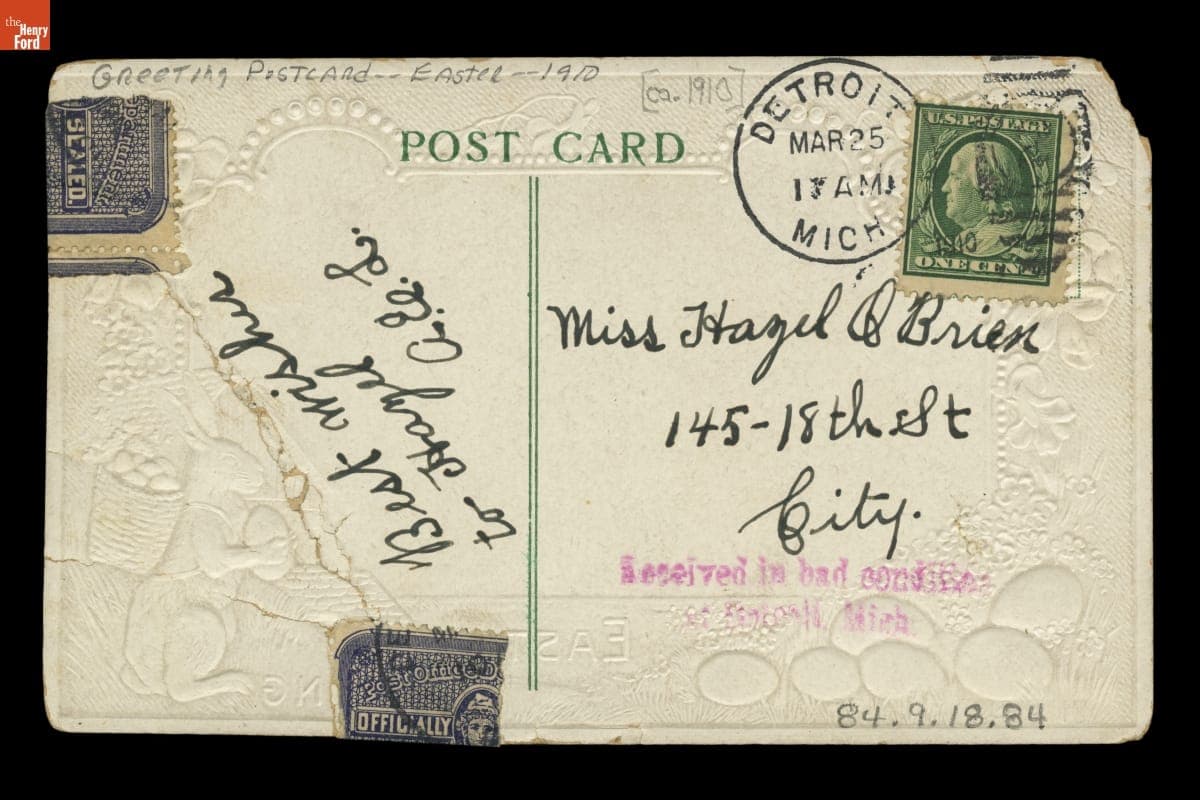 the
Henry
Ford
Greeting Postcard -- Easter -- 1910
[ca. 1910]
POST CARD
DETROIT
MAR 25
AM
MICH
1910
U.S. POSTAGE
ONE CENT
SEALED.
Best wishes
to Hazel
Miss Hazel O Brien
145-18th St
City.
Received in bad condition
at Detroit, Mich.
EAST
NG
Post Office D
OFFICIALLY
84.9.18.84